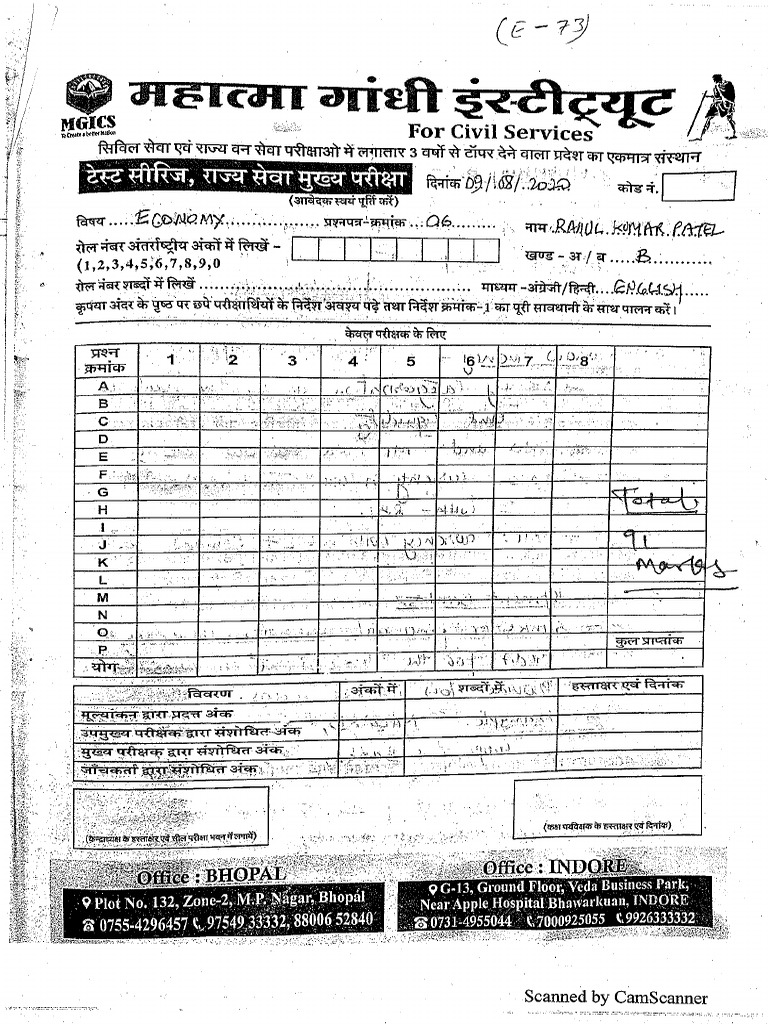 (E - 73)
महात्मा गांधी इंस्टीट्रयूट
MGICS
To Create a better Nation
For Civil Services
सिविल सेवा एवं राज्य वन सेवा परीक्षाओ में लगातार 3 वर्षो से टॉपर देने वाला प्रदेश का एकमात्र संस्थान
टेस्ट सीरिज, राज्य सेवा मुख्य परीक्षा दिनांक 09/08/2020 कोड नं.
(आवेदक स्वयं पूर्ति करें)
विषय ..... ECONOMY ............ प्रश्नपत्र-क्रमांक ... 06 ........ नाम . RAHUL KUMAR PATEL
रोल नंबर अंतर्राष्ट्रीय अंकों में लिखें -
(1,2,3,4,5,6,7,8,9,0
खण्ड - अ / ब ..... B ..........
रोल नंबर शब्दों में लिखें ........ माध्यम -अंग्रेजी/हिन्दी.... ENGLISH .....
कृपया अंदर के पृष्ठ पर छपे परीक्षार्थियों के निर्देश अवश्य पढ़े तथा निर्देश क्रमांक-1 का पूरी सावधानी के साथ पालन करें।
केवल परीक्षक के लिए
प्रश्न क्रमांक 1 2 3 4 5 6 7 8
A
B
C
D
E
F
G
H
I
J
K
L
M
N
O
P
योग
Total
91
Marks
कुल प्राप्तांक
विवरण अंकों में शब्दों में हस्ताक्षर एवं दिनांक
मूल्यांकन द्वारा प्रदत्त अंक
उपमुख्य परीक्षक द्वारा संशोधित अंक
मुख्य परीक्षक द्वारा संशोधित अंक
जाँचकर्ता द्वारा संशोधित अंक
(केन्द्राध्यक्ष के हस्ताक्षर एवं सील परीक्षा भवन में लगायें)
(कक्ष पर्यवेक्षक के हस्ताक्षर एवं दिनांक)
Office : BHOPAL
Plot No. 132, Zone-2, M.P. Nagar, Bhopal
0755-4296457 97549 33332, 88006 52840
Office : INDORE
G-13, Ground Floor, Veda Business Park,
Near Apple Hospital Bhawarkuan, INDORE
0731-4955044 7000925055 9926333332
Scanned by CamScanner